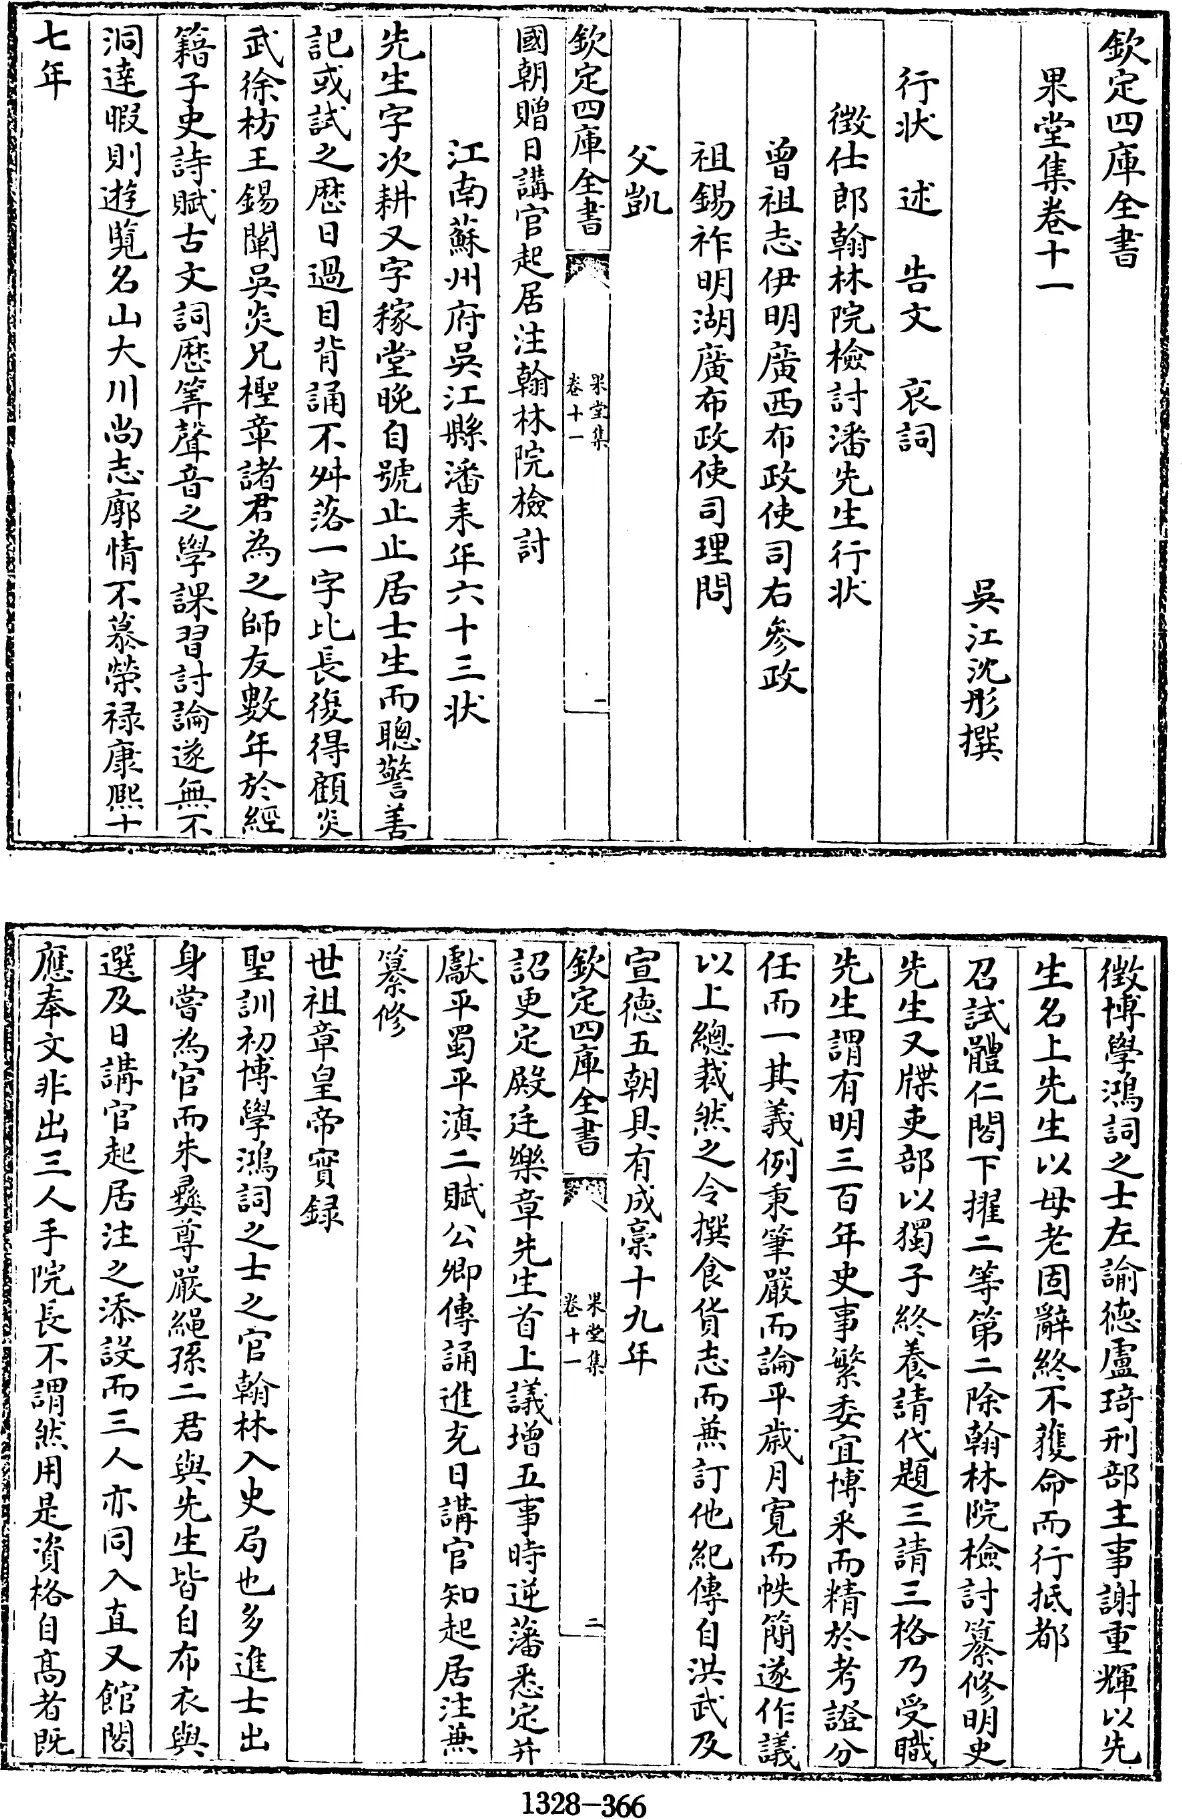 欽定四庫全書
果堂集卷十一
吳江沈彤撰
行狀　述　告文　哀詞
徵仕郎翰林院檢討潘先生行狀
曾祖志伊明廣西布政使司右參政
祖錫祚明湖廣布政使司理問
父凱
欽定四庫全書
果堂集
卷十一
一
國朝贈日講官起居注翰林院檢討
江南蘇州府吳江縣潘耒年六十三狀
先生字次耕又字稼堂晚自號止止居士生而聰警善
記或試之歷日過目背誦不舛落一字比長後得顧炎
武徐枋王錫闡吳炎兄檉章諸君為之師友數年於經
籍子史詩賦古文詞歷筭聲音之學課習討論遂無不
洞達暇則遊覽名山大川尚志廓情不慕榮祿康熙十
七年
徵博學鴻詞之士左諭德盧琦刑部主事謝重輝以先
生名上先生以母老固辭終不獲命而行抵都
召試體仁閣下擢二等第二除翰林院檢討纂修明史
先生又牒吏部以獨子終養請代題三請三格乃受職
先生謂有明三百年史事繁委宜博采而精於考證分
任而一其義例秉筆嚴而論平歲月寬而帙簡遂作議
以上總裁然之令撰食貨志而兼訂他紀傳自洪武及
宣德五朝具有成稾十九年
欽定四庫全書
果堂集
卷十一
二
詔更定殿廷樂章先生首上議增五事時逆藩悉定并
獻平蜀平滇二賦公卿傳誦進充日講官知起居注兼
纂修
世祖章皇帝實録
聖訓初博學鴻詞之士之官翰林入史局也多進士出
身嘗為官而朱彝尊嚴繩孫二君與先生皆自布衣與
選及日講官起居注之添設而三人亦同入直又館閣
應奉文非出三人手院長不謂然用是資格自高者既
1328-366